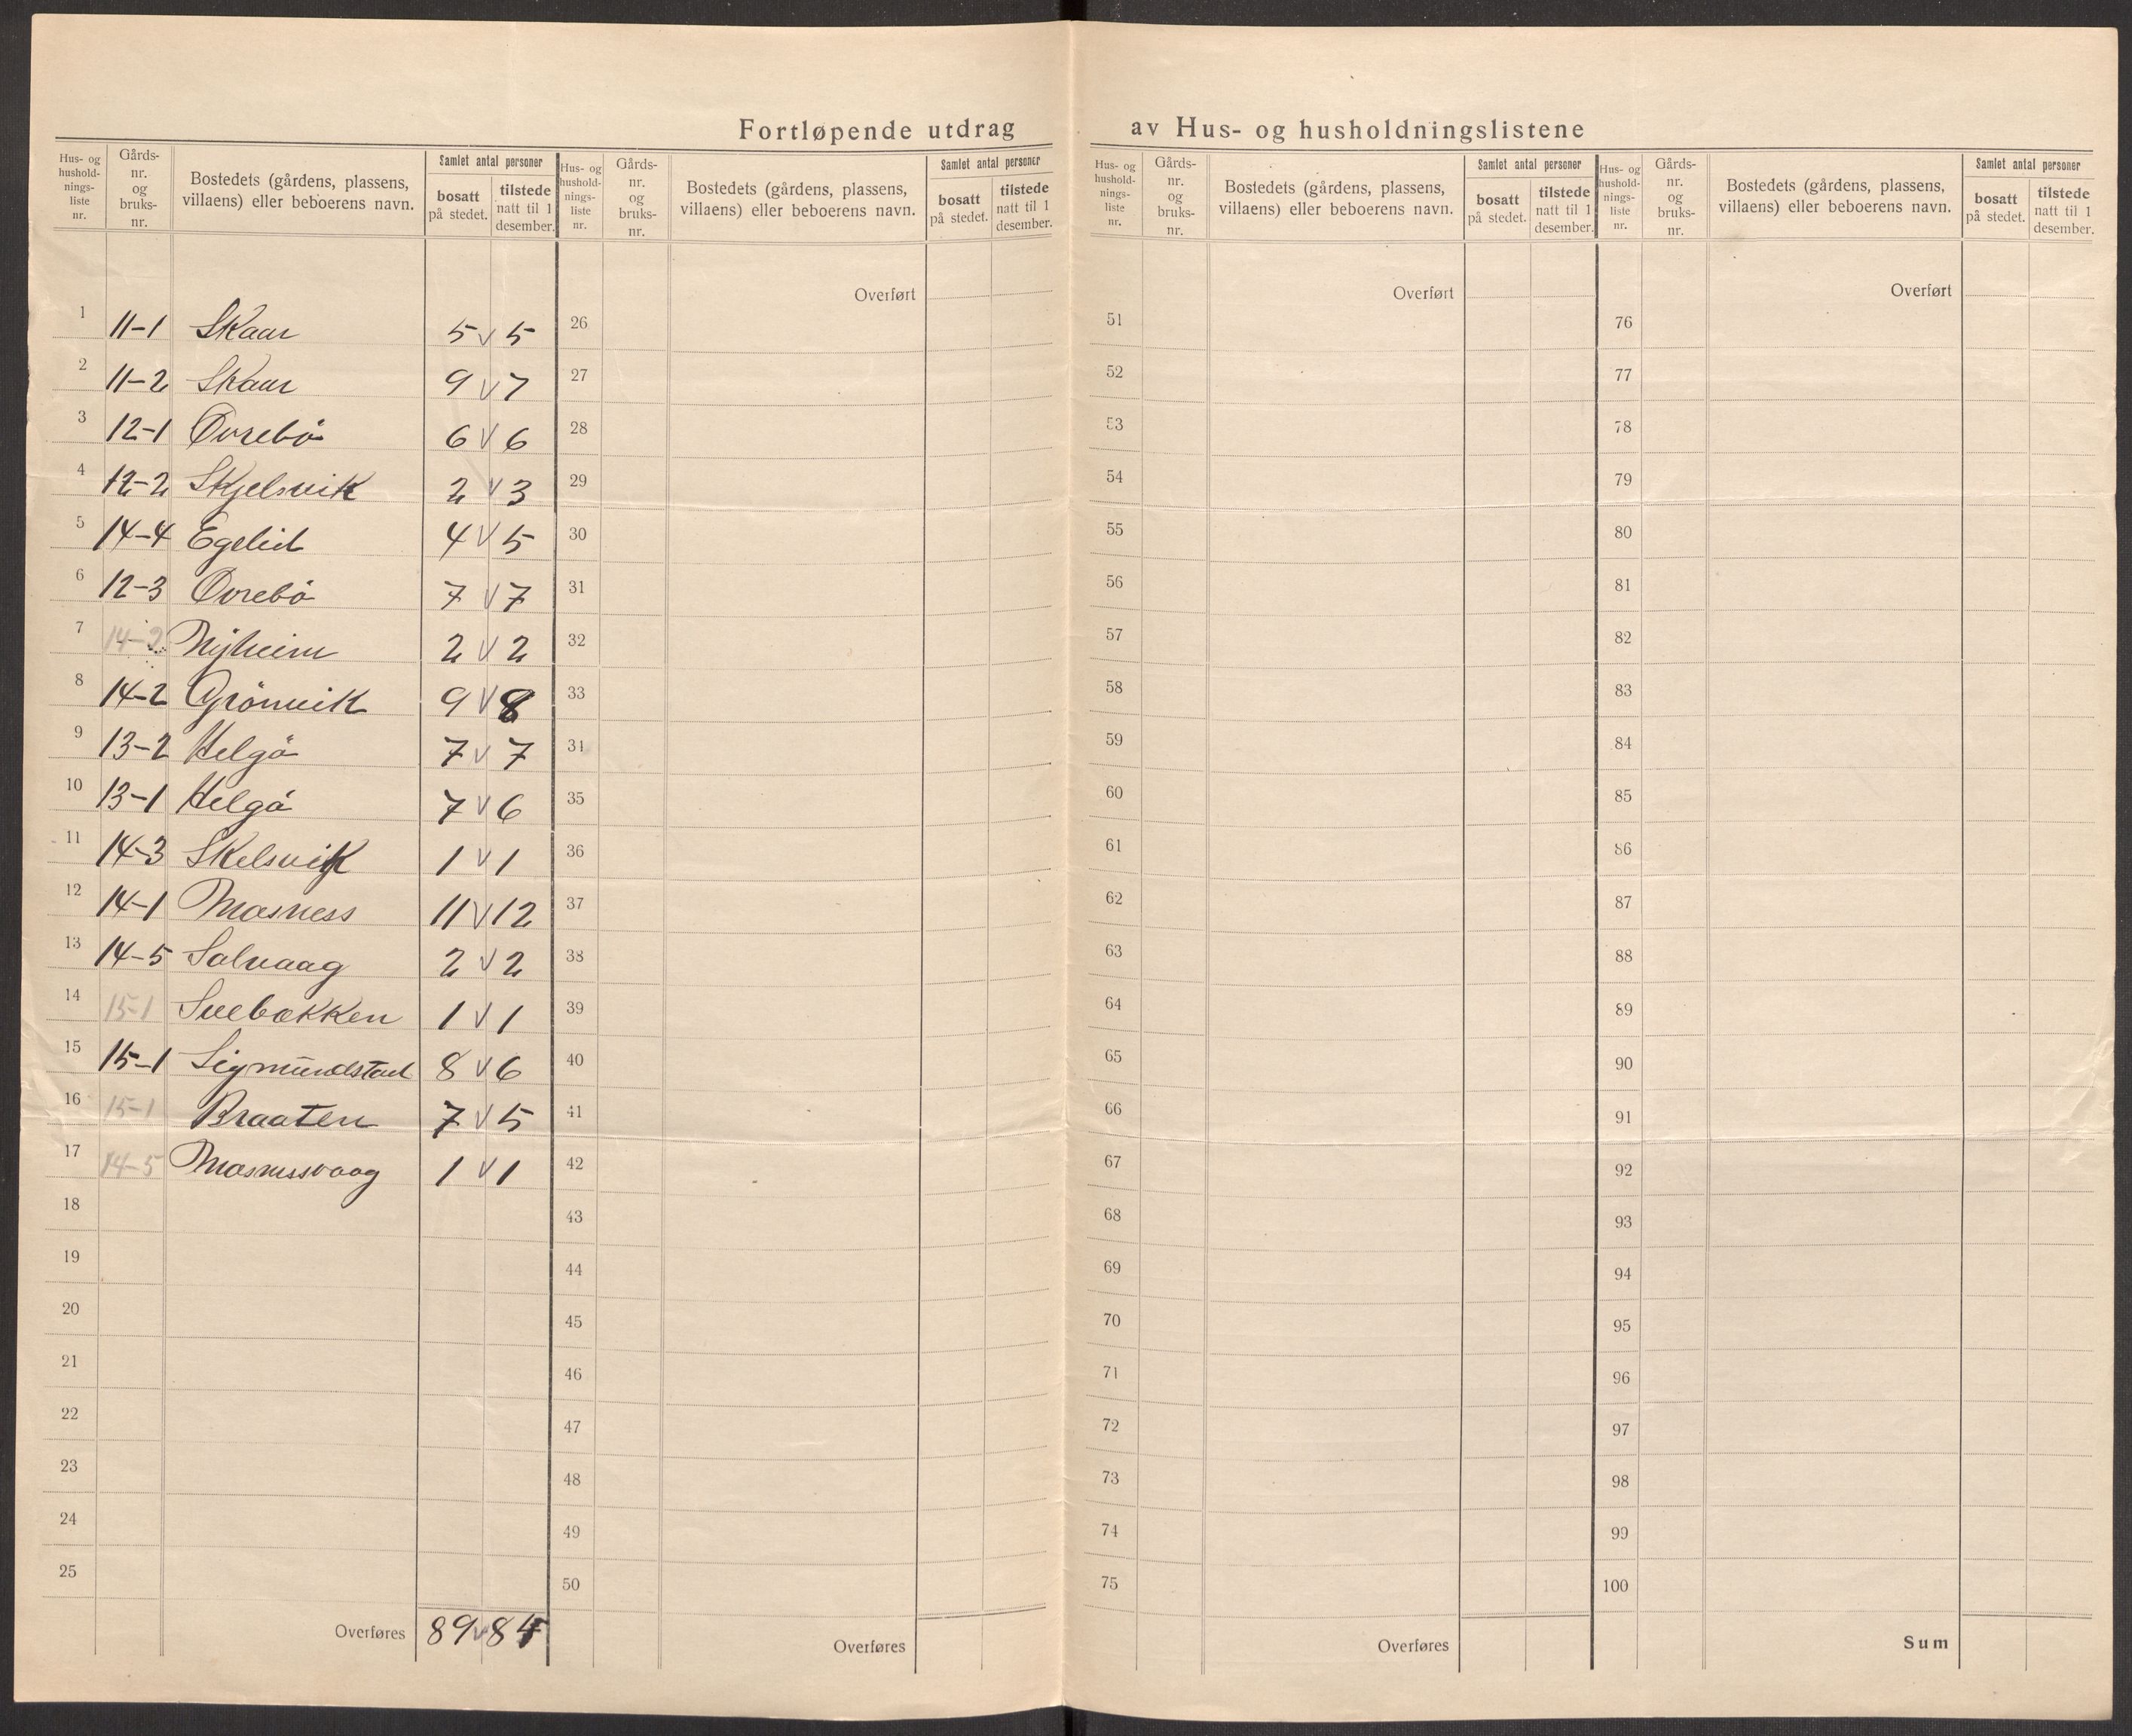 Fortløpende utdrag av Hus- og husholdningslistene
Hus- og hushold- nings- liste nr. | Gårds- nr. og bruks- nr. | Bostedets (gårdens, plassens, villaens) eller beboerens navn. | Samlet antal personer | bosatt på stedet. | tilstede natt til 1 desember.
1 11-1 Skaar 5 v 5
2 11-2 Skaar 9 v 7
3 12-1 Övrebö 6 v 6
4 12-2 Skjelsvik 2 v 3
5 14-4 Egelid 4 v 5
6 12-3 Övrebö 7 v 7
7 14-2 Nyheim 2 v 2
8 14-2 Grönvik 9 v 8
9 13-2 Helgö 7 v 7
10 13-1 Helgö 7 v 6
11 14-3 Skelsvik 1 v 1
12 14-1 Masness 11 v 12
13 14-5 Solvaag 2 v 2
14 15-1 Sveebakken 1 v 1
15 15-1 Sigmundstad 8 v 6
16 15-1 Braaten 7 v 5
17 14-5 Masnessvaag 1 v 1
18
19
20
21
22
23
24
25
Overføres 89 v 84
Hus- og hushold- nings- liste nr. | Gårds- nr. og bruks- nr. | Bostedets (gårdens, plassens, villaens) eller beboerens navn. | Samlet antal personer | bosatt på stedet. | tilstede natt til 1 desember.
Overført
26
27
28
29
30
31
32
33
34
35
36
37
38
39
40
41
42
43
44
45
46
47
48
49
50
Overføres
Hus- og hushold- nings- liste nr. | Gårds- nr. og bruks- nr. | Bostedets (gårdens, plassens, villaens) eller beboerens navn. | Samlet antal personer | bosatt på stedet. | tilstede natt til 1 desember.
Overført
51
52
53
54
55
56
57
58
59
60
61
62
63
64
65
66
67
68
69
70
71
72
73
74
75
Overføres
Hus- og hushold- nings- liste nr. | Gårds- nr. og bruks- nr. | Bostedets (gårdens, plassens, villaens) eller beboerens navn. | Samlet antal personer | bosatt på stedet. | tilstede natt til 1 desember.
Overført
76
77
78
79
80
81
82
83
84
85
86
87
88
89
90
91
92
93
94
95
96
97
98
99
100
Sum